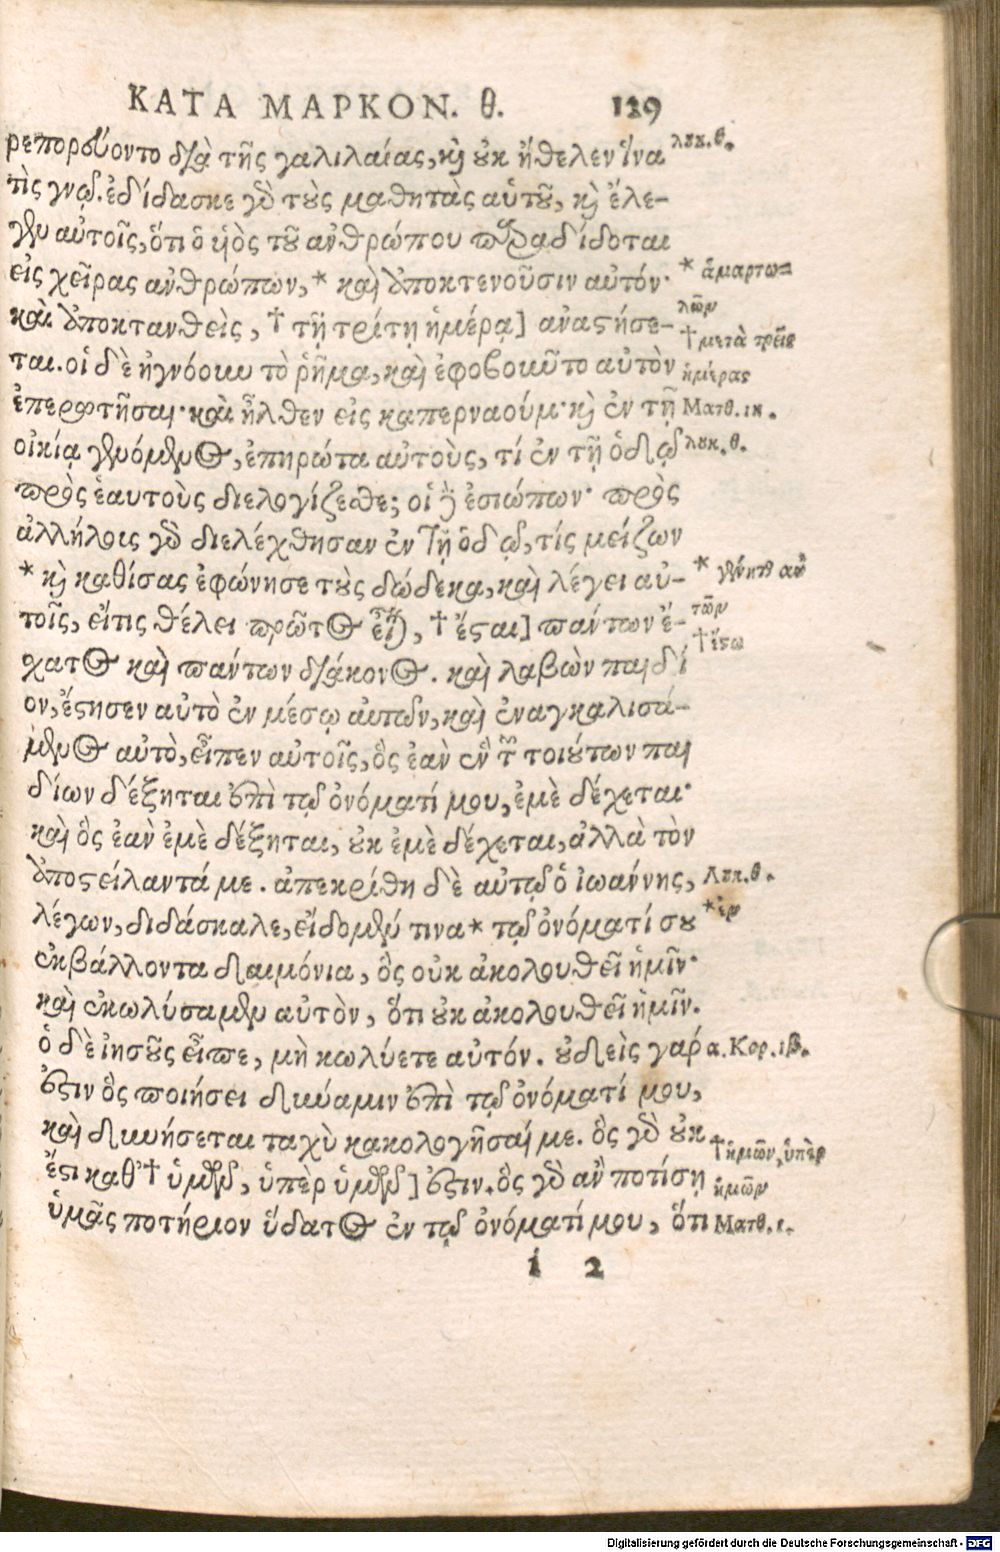 ΚΑΤΑ ΜΑΡΚΟΝ. θ. 129
ρεπορεύοντο διὰ τῆς γαλιλαίας, καὶ οὐκ ἤθελεν ἵνα λουκ. θ.
τὶς γνῷ. ἐδίδασκε γὰρ τοὺς μαθητὰς αὑτοῦ, καὶ ἔλε-
γεν αὐτοῖς, ὅτι ὁ υἱὸς τοῦ ἀνθρώπου παραδίδοται
εἰς χεῖρας ἀνθρώπων, * καὶ ἀποκτενοῦσιν αὐτόν· * ἁμαρτω-
λῶν
καὶ ἀποκτανθεὶς, † τῇ τρίτῃ ἡμέρᾳ] ἀναστήσε- † μετὰ τρεῖς
ται. οἱ δὲ ἠγνόουν τὸ ῥῆμα, καὶ ἐφοβοῦντο αὐτὸν ἡμέρας
ἐπερωτῆσαι· καὶ ἦλθεν εἰς καπερναούμ· καὶ ἐν τῇ Ματθ. ιη.
οἰκίᾳ γενόμενος, ἐπηρώτα αὐτοὺς, τί ἐν τῇ ὁδῷ λουκ. θ.
πρὸς ἑαυτοὺς διελογίζεσθε; οἱ δὲ ἐσιώπων· πρὸς
ἀλλήλους γὰρ διελέχθησαν ἐν τῇ ὁδῷ, τίς μείζων
* καὶ καθίσας ἐφώνησε τοὺς δώδεκα, καὶ λέγει αὐ- * γένηται αὐ
τῶν
τοῖς, εἴτις θέλει πρῶτος εἶναι, † ἔσται] πάντων ἔ- † ἔστω
χατος καὶ πάντων διάκονος. καὶ λαβὼν παιδί
ον, ἔστησεν αὐτὸ ἐν μέσῳ αὐτῶν, καὶ ἐναγκαλισά-
μενος αὐτὸ, εἶπεν αὐτοῖς, ὃς ἐὰν ἓν τῶν τοιούτων παι
δίων δέξηται ἐπὶ τῷ ὀνόματί μου, ἐμὲ δέχεται·
καὶ ὃς ἐὰν ἐμὲ δέξηται, οὐκ ἐμὲ δέχεται, ἀλλὰ τὸν
ἀποστείλαντά με. ἀπεκρίθη δὲ αὐτῷ ὁ ἰωάννης, Λουκ. θ.
λέγων, διδάσκαλε, εἴδομέν τινα * τῷ ὀνόματί σου * ἐν
ἐκβάλλοντα δαιμόνια, ὃς οὐκ ἀκολουθεῖ ἡμῖν·
καὶ ἐκωλύσαμεν αὐτὸν, ὅτι οὐκ ἀκολουθεῖ ἡμῖν.
ὁ δὲ ἰησοῦς εἶπε, μὴ κωλύετε αὐτόν. οὐδεὶς γάρ α. Κορ. ιβ.
ἐστιν ὃς ποιήσει δύναμιν ἐπὶ τῷ ὀνόματί μου,
καὶ δυνήσεται ταχὺ κακολογῆσαί με. ὃς γὰρ οὐκ † ἡμῶν, ὑπὲρ
ἔστι καθ' † ὑμῶν, ὑπὲρ ὑμῶν] ἐστιν. ὃς γὰρ ἂν ποτίσῃ ἡμῶν
ὑμᾶς ποτήριον ὕδατος ἐν τῷ ὀνόματί μου, ὅτι Ματθ. ι.
i 2
Digitalisierung gefördert durch die Deutsche Forschungsgemeinschaft - DFG